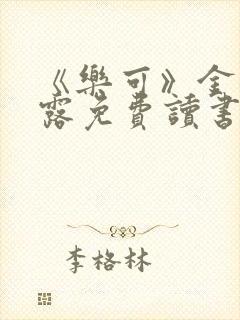 《樂可》全
露免費讀書
李格林